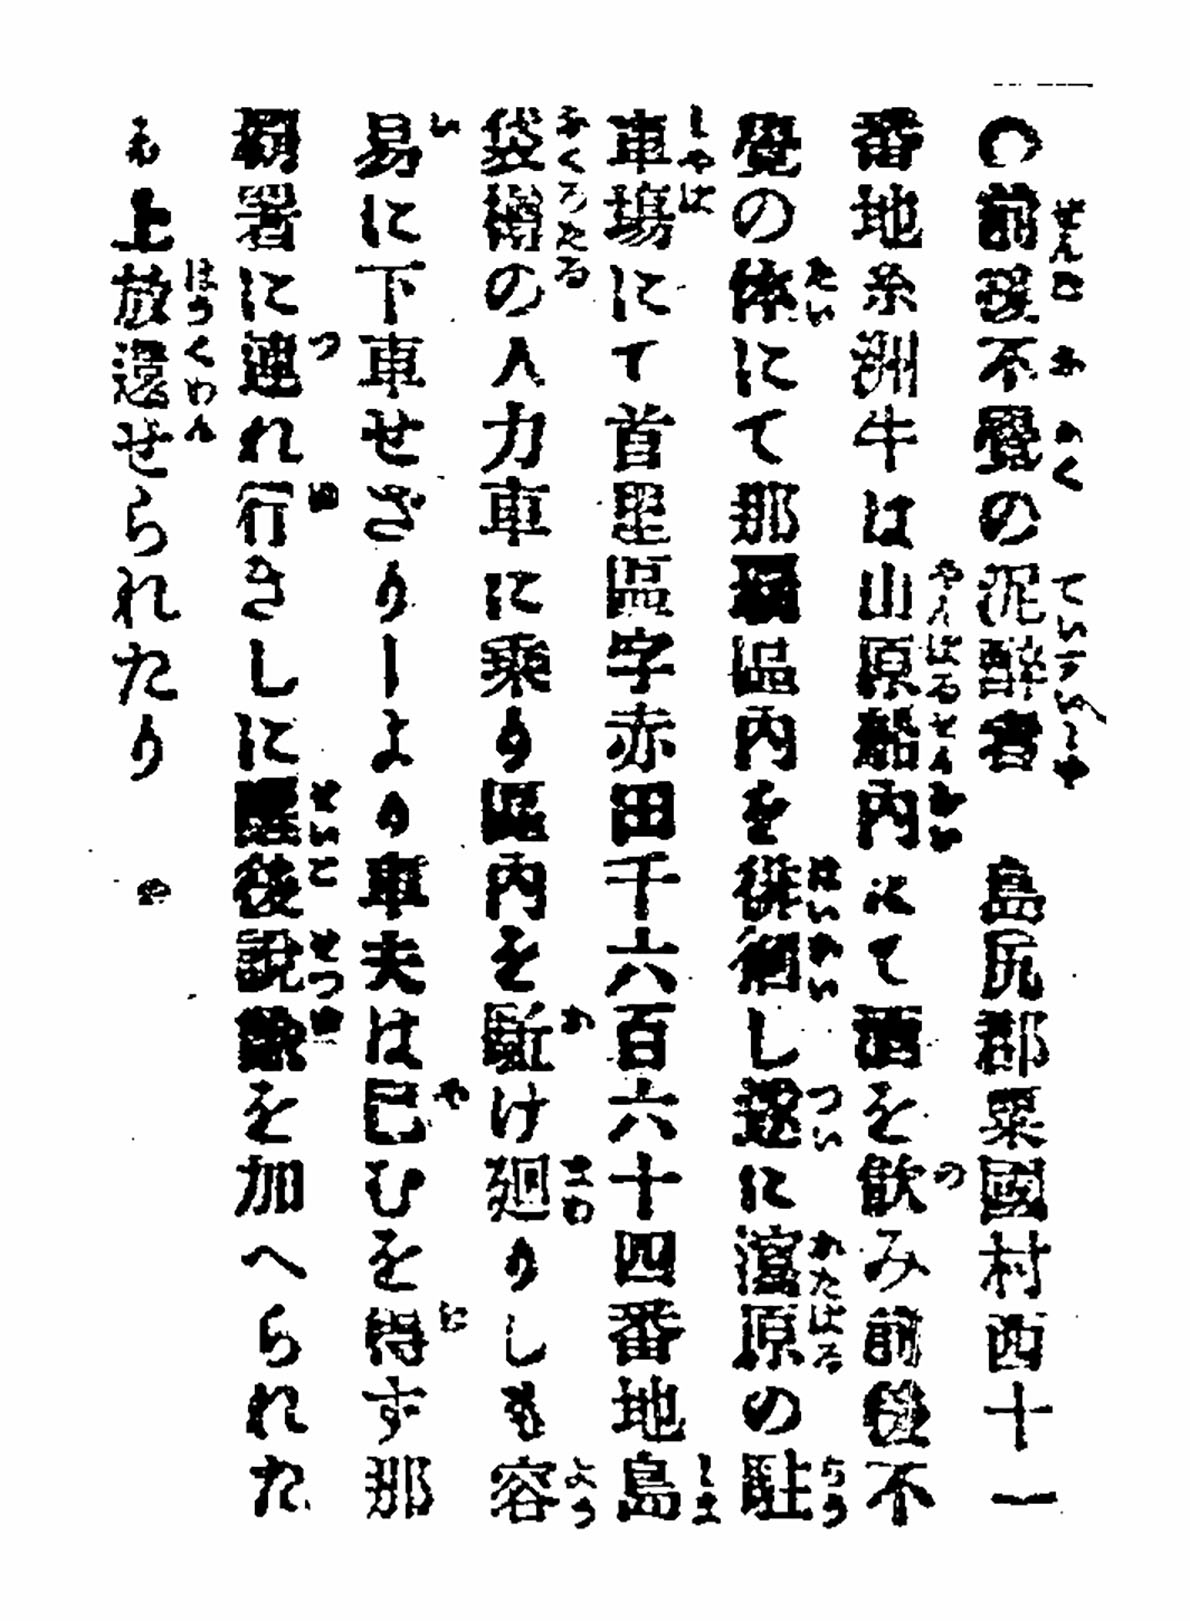 ○前後不覺の泥醉者　島尻郡粟國村西十一
番地糸洲牛は山原船內にて酒を飮み前後不
覺の体にて那覇區內を徘徊し遂に潟原の駐
車塲にて首里區字赤田千六百六十四番地島
袋樽の人力車に乘り區內を駈け廻りしも容
易に下車せざりしより車夫は已むを得ず那
覇署に連れ行きしに醒後說諭を加へられた
る上放還せられたり